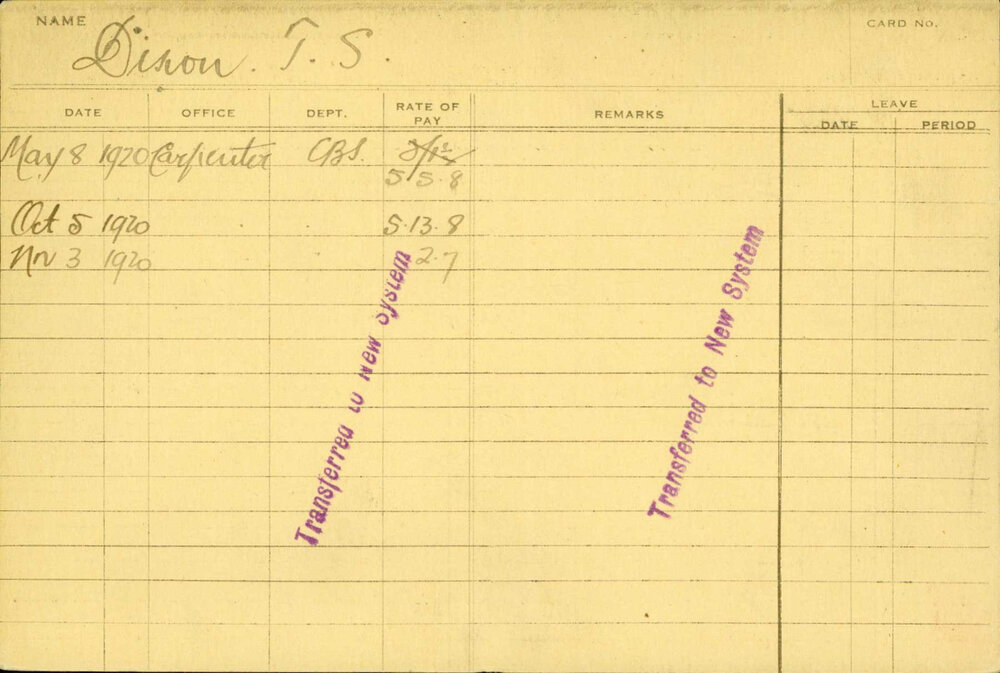 NAME
CARD No.
Dixon. T. S.
DATE OFFICE DEPT. RATE OF PAY REMARKS LEAVE
DATE PERIOD
May 8 1920 Carpenter CBS.
5 5.8
Oct 5 1920 5.13.8
Nov 3 1920 2.7
Transferred to New System
Transferred to New System